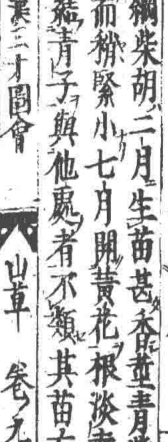 綱柴胡二月生苗甚香莖青
而稍緊小七月開黃花根淡
結青子與他處者不類其苗
漢三才圖會 山草 卷九